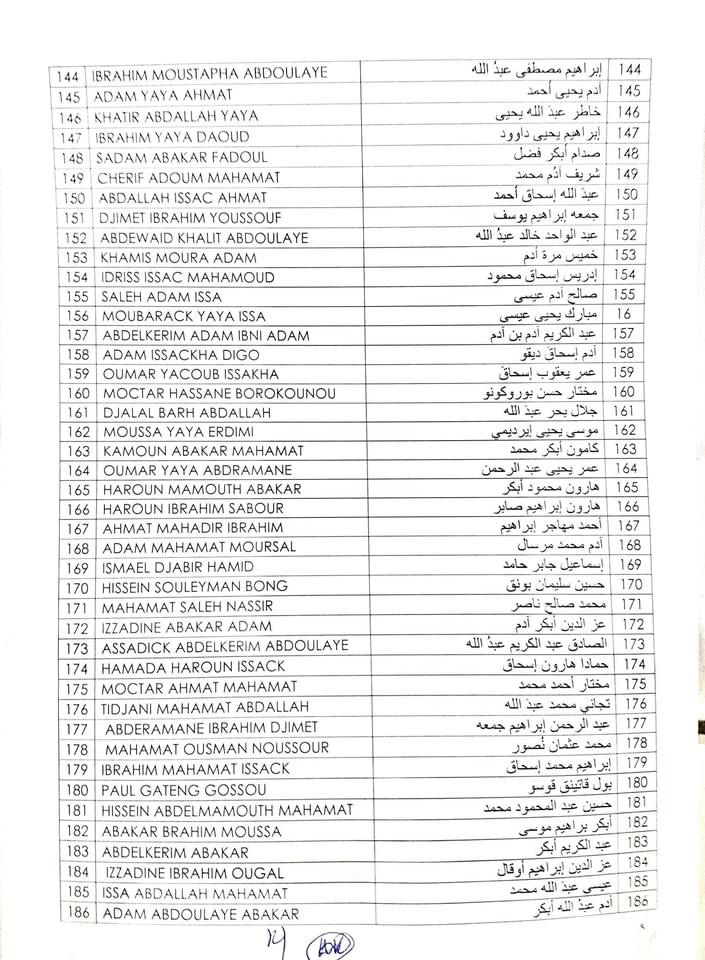 144 IBRAHIM MOUSTAPHA ABDOULAYE إبراهيم مصطفى عبدُ الله 144
145 ADAM YAYA AHMAT آدم يحيى أحمد 145
146 KHATIR ABDALLAH YAYA خاطر عبدَ الله يحيى 146
147 IBRAHIM YAYA DAOUD إبراهيم يحيى داوود 147
148 SADAM ABAKAR FADOUL صدام أبكر فضل 148
149 CHERIF ADOUM MAHAMAT شريف آدُم محمد 149
150 ABDALLAH ISSAC AHMAT عبدَ الله إسحاق أحمد 150
151 DJIMET IBRAHIM YOUSSOUF جمعه إبراهيم يوسف 151
152 ABDEWAID KHALIT ABDOULAYE عبد الواحد خالد عبدُ الله 152
153 KHAMIS MOURA ADAM خميس مرة آدم 153
154 IDRISS ISSAC MAHAMOUD إدريس إسحاق محمود 154
155 SALEH ADAM ISSA صالح آدم عيسى 155
156 MOUBARACK YAYA ISSA مبارك يحيى عيسى 16
157 ABDELKERIM ADAM IBNI ADAM عبد الكريم آدم بن آدم 157
158 ADAM ISSACKHA DIGO آدم إسحاق ديقو 158
159 OUMAR YACOUB ISSAKHA عمر يعقوب إسحاق 159
160 MOCTAR HASSANE BOROKOUNOU مختار حسن بوروكونو 160
161 DJALAL BARH ABDALLAH جلال بحر عبدَ الله 161
162 MOUSSA YAYA ERDIMI موسى يحيى إيرديمي 162
163 KAMOUN ABAKAR MAHAMAT كامون أبكر محمد 163
164 OUMAR YAYA ABDRAMANE عمر يحيى عبد الرحمن 164
165 HAROUN MAMOUTH ABAKAR هارون محمود أبكر 165
166 HAROUN IBRAHIM SABOUR هارون إبراهيم صابر 166
167 AHMAT MAHADIR IBRAHIM أحمد مهاجر إبراهيم 167
168 ADAM MAHAMAT MOURSAL آدم محمد مرسال 168
169 ISMAEL DJABIR HAMID إسماعيل جابر حامد 169
170 HISSEIN SOULEYMAN BONG حسين سليمان بونق 170
171 MAHAMAT SALEH NASSIR محمد صالح ناصر 171
172 IZZADINE ABAKAR ADAM عز الدين أبكر آدم 172
173 ASSADICK ABDELKERIM ABDOULAYE الصادق عبد الكريم عبدُ الله 173
174 HAMADA HAROUN ISSACK حمادا هارون إسحاق 174
175 MOCTAR AHMAT MAHAMAT مختار أحمد محمد 175
176 TIDJANI MAHAMAT ABDALLAH تجاني محمد عبدَ الله 176
177 ABDERAMANE IBRAHIM DJIMET عبد الرحمن إبراهيم جمعه 177
178 MAHAMAT OUSMAN NOUSSOUR محمد عثمان نُصور 178
179 IBRAHIM MAHAMAT ISSACK إبراهيم محمد إسحاق 179
180 PAUL GATENG GOSSOU بول قاتينق قوسو 180
181 HISSEIN ABDELMAMOUTH MAHAMAT حسين عبد المحمود محمد 181
182 ABAKAR BRAHIM MOUSSA أبكر براهيم موسى 182
183 ABDELKERIM ABAKAR عبد الكريم أبكر 183
184 IZZADINE IBRAHIM OUGAL عز الدين إبراهيم أوقال 184
185 ISSA ABDALLAH MAHAMAT عيسى عبدَ الله محمد 185
186 ADAM ABDOULAYE ABAKAR آدم عبدُ الله أبكر 186